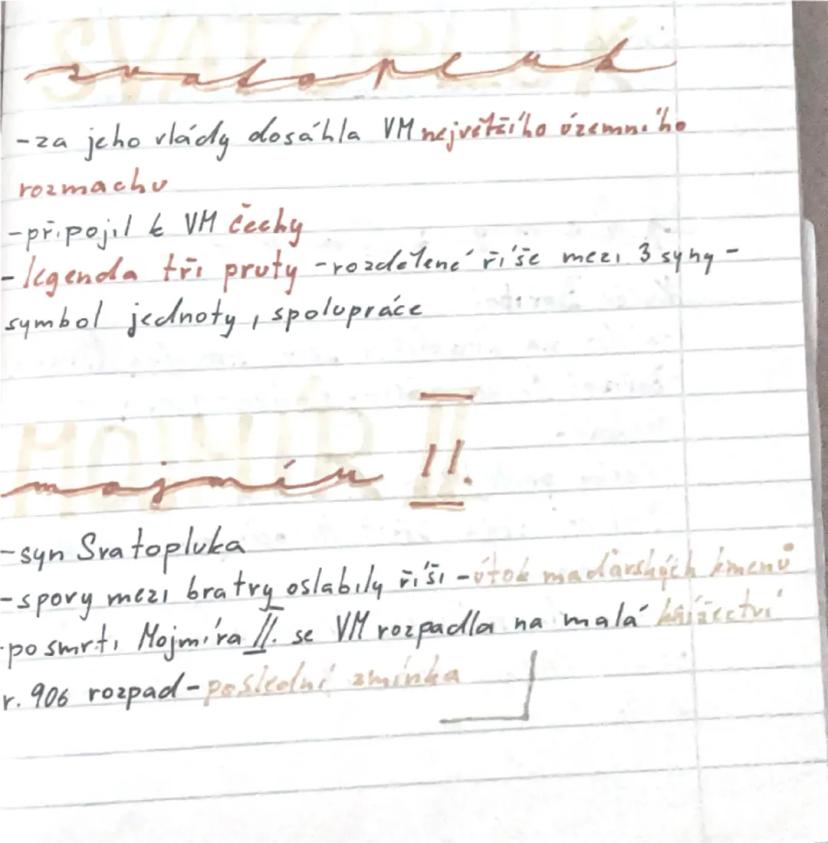 svatopluk
-za jeho vlády dosáhla VM největšího územního
rozmachu
-připojil k VM čechy
-legenda tři pruty -rozdělené říše mezi 3 syny-
symbol jednoty, spolupráce
mojmír II.
-syn Svatopluka
-spory mezi bratry oslabily říši -útok maďarských kmenů
-po smrti Mojmíra II. se VM rozpadla na malá knížectví
r. 906 rozpad-poslední zmínka